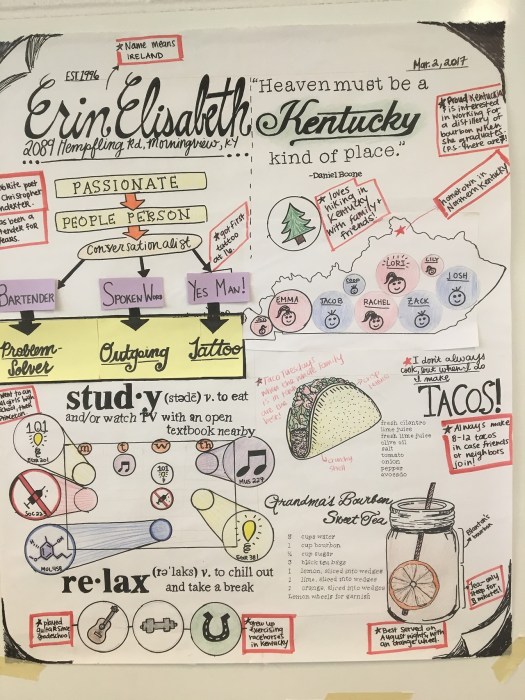 ★ Name means
IRELAND
EST. 1996
Mar. 2, 2017
Erin Elisabeth
2089 Hempfling Rd, Morningview, KY
"Heaven must be a
Kentucky
kind of place."
-Daniel Boone
★ Proud Kentuckian
is interested
in working for
a distillery or
bourbon when
she graduates.
hometown in
Northern Kentucky
★ loves
hiking in
Kentucky
with family +
friends!
favorite poet
Christopher
has been a
bartender for
years.
PASSIONATE
PEOPLE PERSON
Conversationalist
★ got first
tattoo
at 16
BARTENDER
SPOKEN WORD
YES MAN!
Problem-
Solver
Outgoing
Tattoo
EMMA
JACOB
LORI
LILY
RACHEL
ZACK
JOSH
stud·y (stədē) v. to eat
and/or watch TV with an open
textbook nearby
101
m
t
w
th
MUS 229
re·lax (rə'laks) v. to chill out
and take a break
★ played
guitar since
gradeschool
★ grew up
exercising
racehorses
in Kentucky
★ Taco Tuesday!
★ I don't always
cook, but when I do
I make
TACOS!
★ Always make
8-12 tacos
in case friends
or neighbors
join in!
crunchy
shell
fresh cilantro
lime juice
fresh lime juice
olive oil
salt
tomato
onion
pepper
avocado
Grandma's Bourbon
Sweet Tea
8 cups water
1 cup bourbon
¾ cup sugar
3 black tea bags
1 lemon, sliced into wedges
1 lime, sliced into wedges
2 orange, sliced into wedges
Lemon wheels for garnish
Blanton's
bourbon
Tea-only
steep for
8 minutes!
★ Best served on
August nights with
an orange wheel.